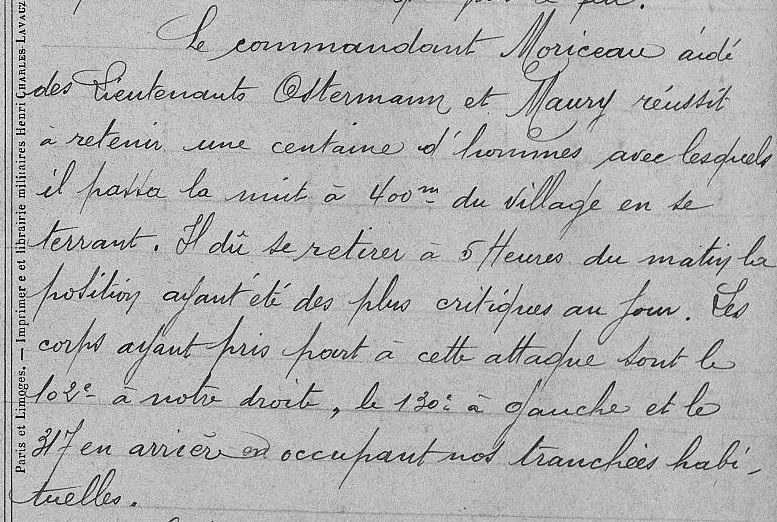 Le commandant Moriceau aidé
des Lieutenants Ostermann et Maury réussit
à retenir une centaine d'hommes avec lesquels
il passa la nuit à 400m du village en se
terrant. Il dû se retirer à 5 Heures du matin la
position ayant été des plus critiques au jour. Les
corps ayant pris part à cette attaque sont le
102e à notre droite, le 130e à gauche et le
317 en arrière en occupant nos tranchées habi-
tuelles.
Paris et Limoges. — Imprimer e et librairie militaires Henri CHARLES-LAVAUZ